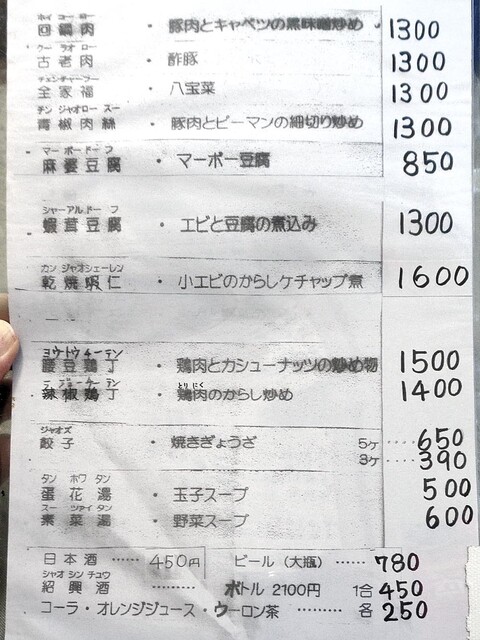 ホイ コー ロー
回鍋肉 ・ 豚肉とキャベツの黒味噌炒め 1300
クー ラオ ロー
古老肉 ・ 酢豚 1300
チェンチャーフー
全家福 ・ 八宝菜 1300
チン ジャオロー スー
青椒肉絲 ・ 豚肉とピーマンの細切り炒め 1300
マー ボー ドー フ
麻婆豆腐 ・ マーボー豆腐 850
シャー アル ドー フ
蝦茸豆腐 ・ エビと豆腐の煮込み 1300
カン ジャオシェーレン
乾焼蝦仁 ・ 小エビのからしケチャップ煮 1600
ヨウトウチーテン
腰豆鶏丁 ・ 鶏肉とカシューナッツの炒め物 1500
ラ ジョー チーテン とりにく
辣椒鶏丁 ・ 鶏肉のからし炒め 1400
ジャオズ
餃子 ・ 焼きぎょうざ 5ケ ‥‥ 650
3ケ ‥‥ 390
タン ホワ タン
蛋花湯 ・ 玉子スープ 500
スー ツァイ タン
素菜湯 ・ 野菜スープ 600
日本酒 ‥‥‥ 450円 ビール (大瓶) ‥‥‥ 780
シャオ シン チュウ
紹興酒 ‥‥‥‥‥ ボトル 2100円 1合 450
コーラ・オレンジジュース・ウーロン茶 ‥‥‥‥‥ 各 250